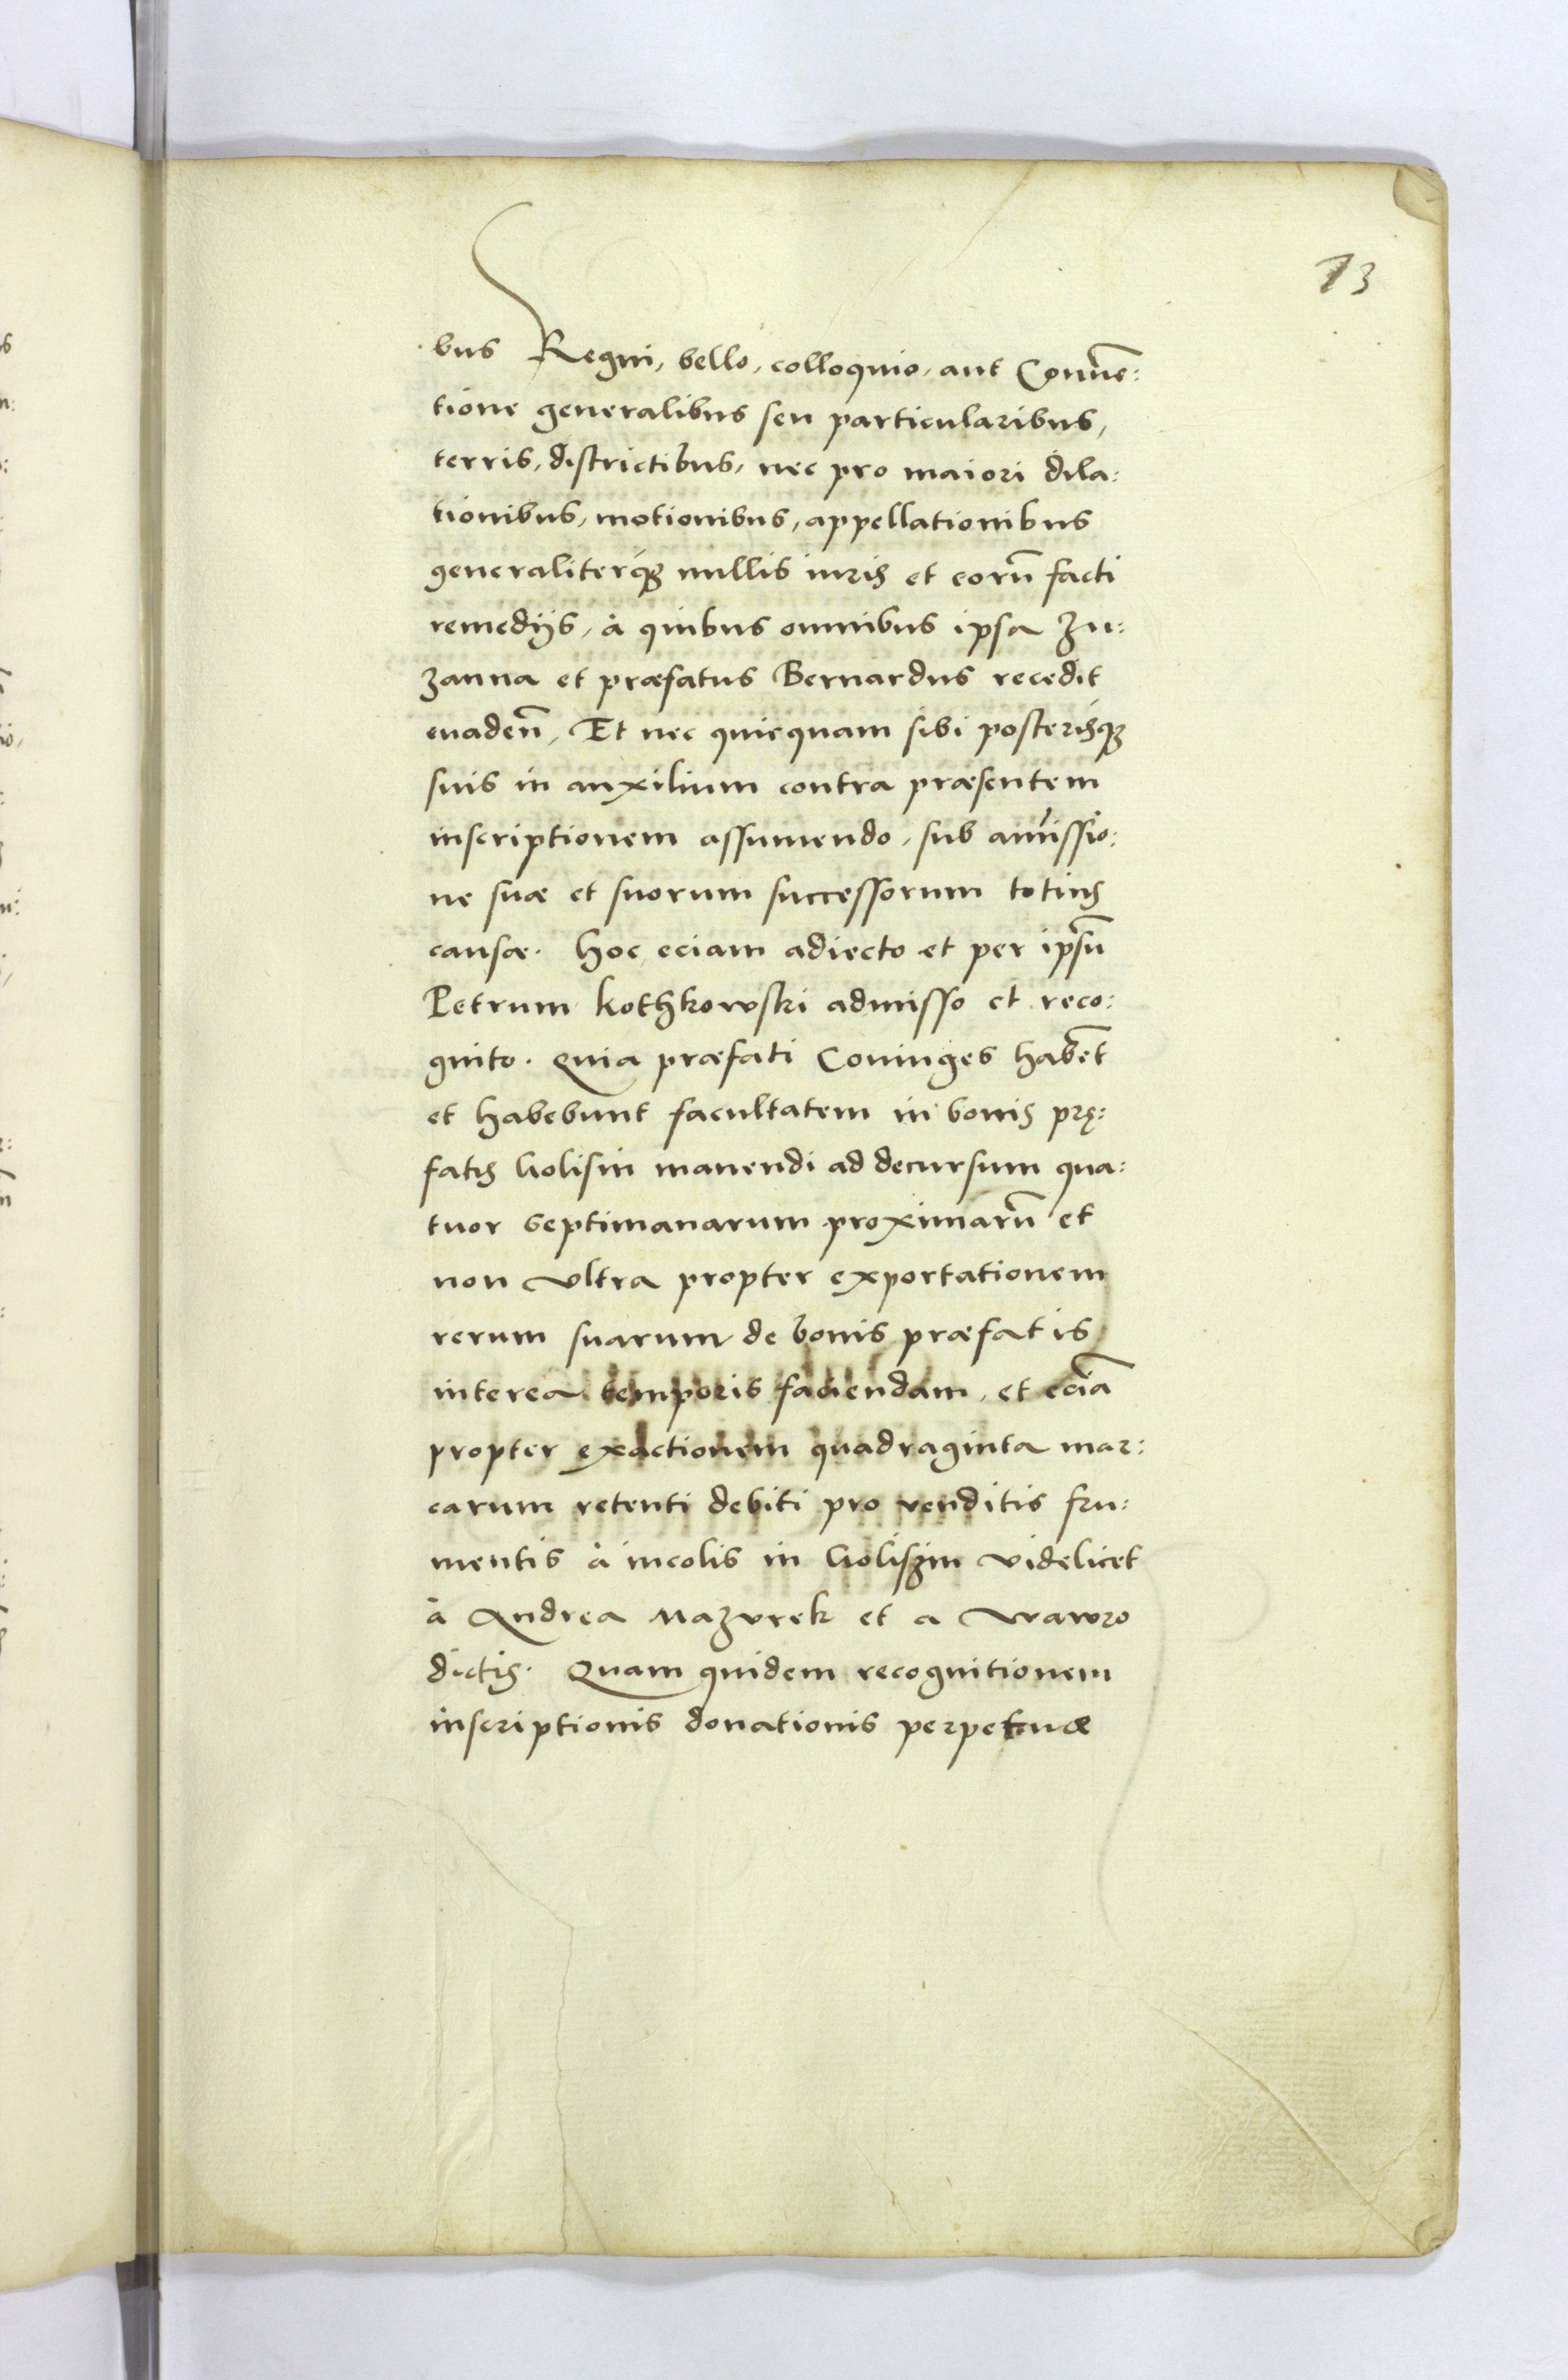 13
bus Regni, bello, colloquio, aut Conuē:
tione generalibus seu particularibus,
terris, districtibus, nec pro maiori dila:
tionibus, motionibus, appellationibus
generaliterq́ꝫ nullis iuris et eorū facti
remedijs, à quibus omnibus ipsa Zu:
zanna et præfatus Bernardus recedit
euadeñ, Et nec quicquam sibi posterisq́ꝫ
suis in auxilium contra præsentem
inscriptionem assumendo, sub amissio:
ne suæ et suorum successorum totius
causæ. Hoc eciam adiecto et per ipsū
Petrum Kothkowski admisso et reco:
gnito. Quia præfati Coniuges habēt
et habebunt facultatem in bonis prę:
fatis Golisin manendi ad decursum qua:
tuor septimanarum proximarū et
non vltra propter exportationem
rerum suarum de bonis præfatis
interea temporis faciendam, et eciā
propter exactionem quadraginta mar:
carum retenti debiti pro venditis fru:
mentis à incolis in Goliszin videlicet
à Andrea Mazurek et a Wawro
dictis. Quam quidem recognitionem
inscriptionis donationis perpetuæ